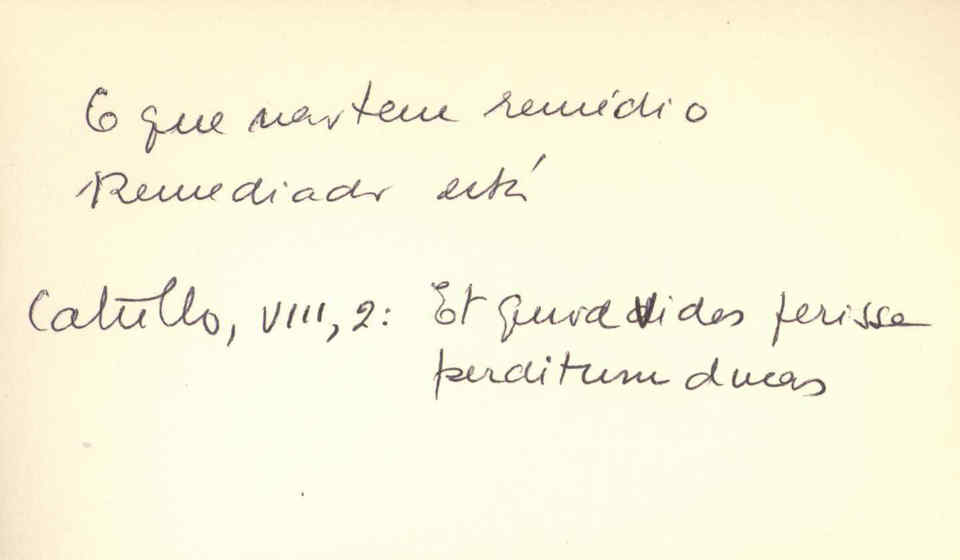 O que não tem remédio
Remediado está
Catullo, VIII, 2: Et quod vides perisse
perditum ducas